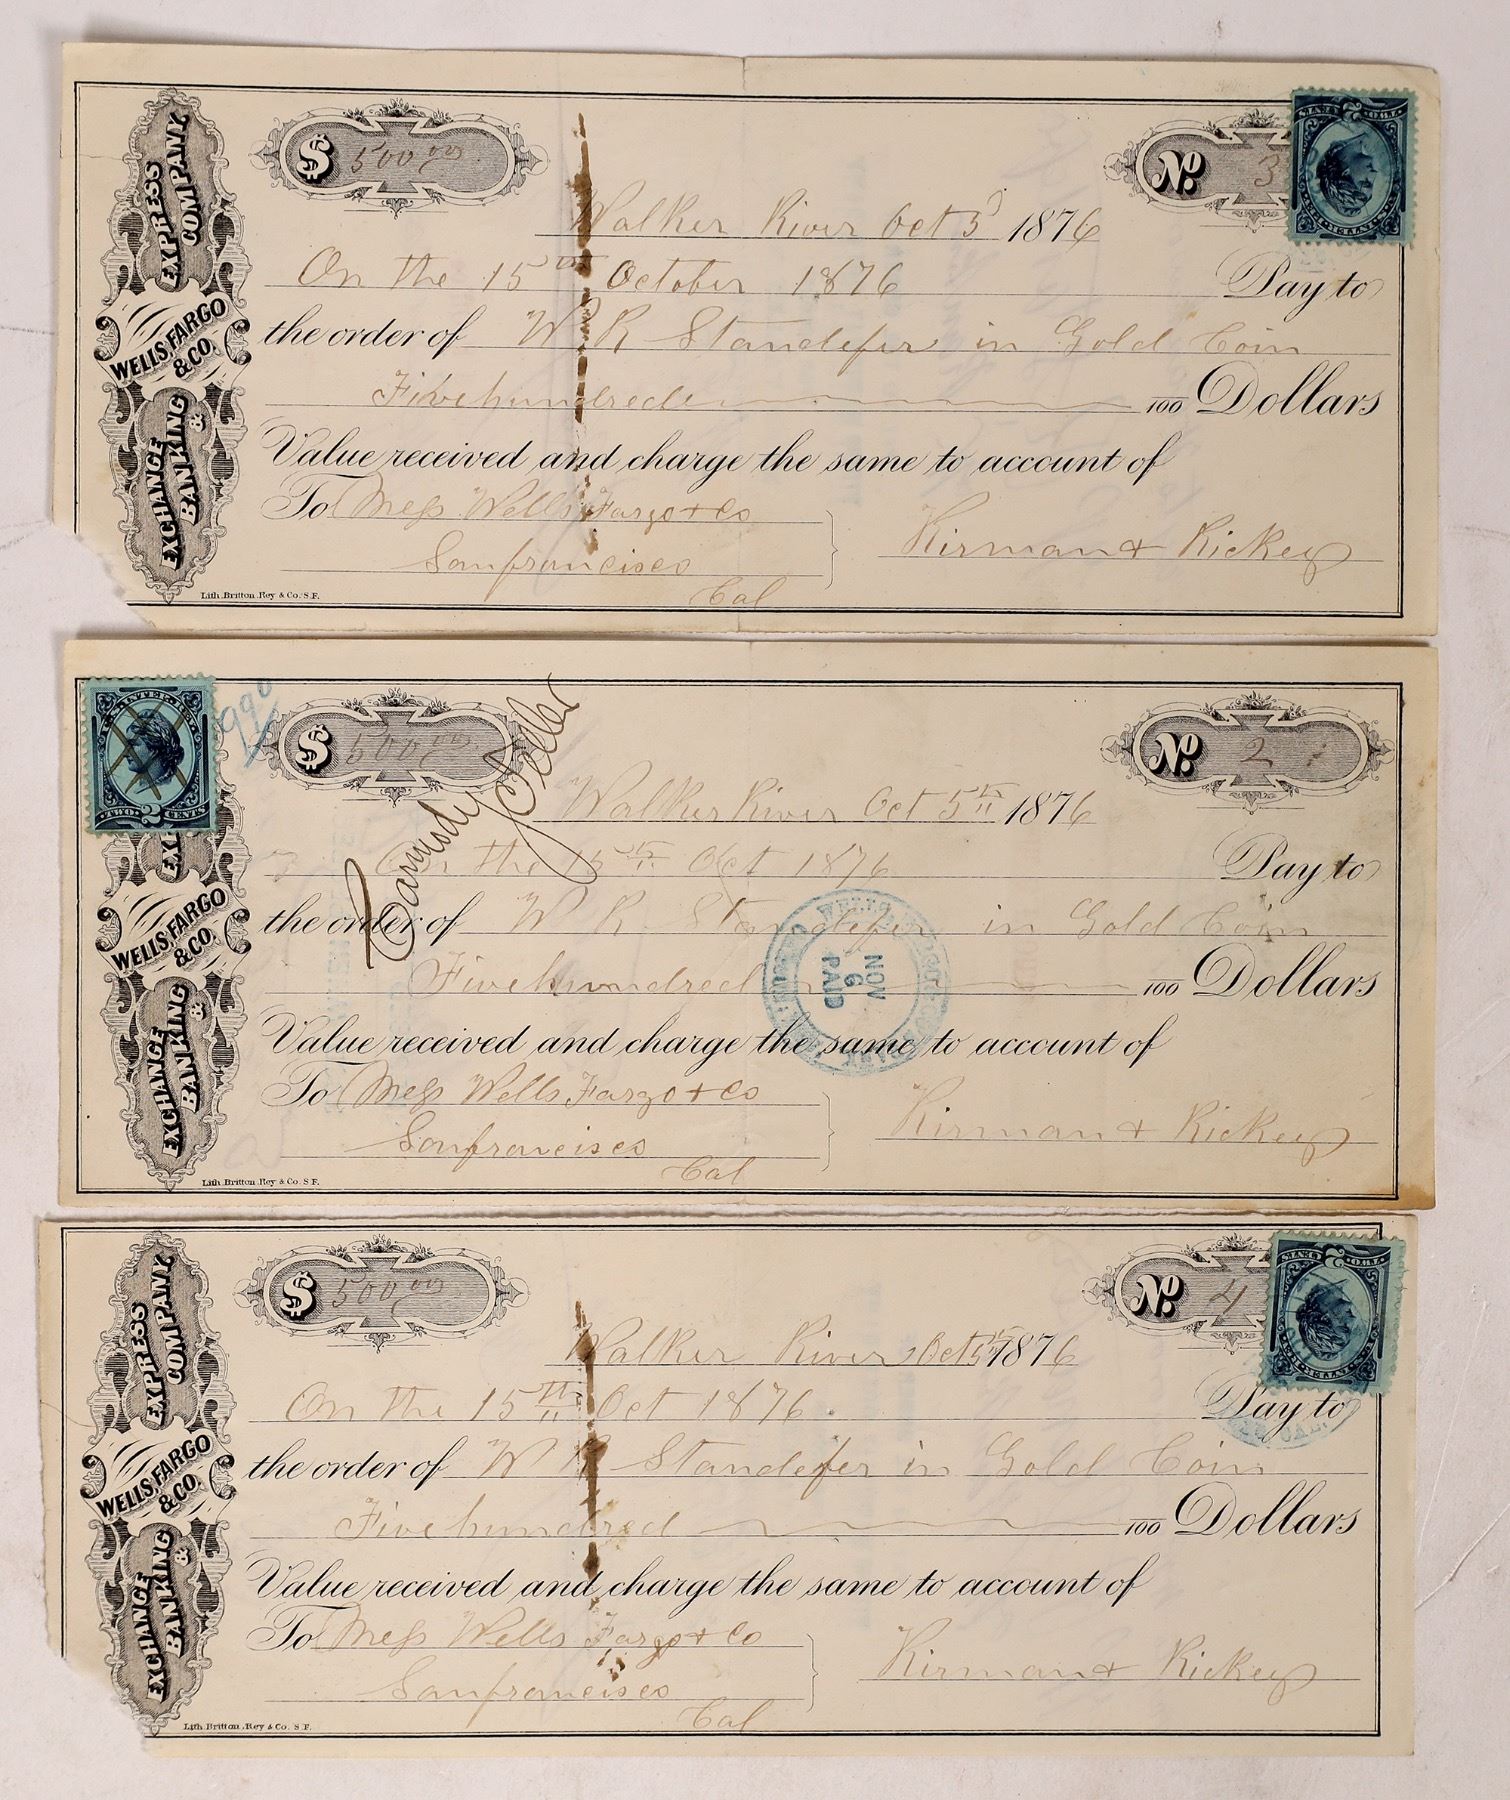 EXPRESS COMPANY
WELLS, FARGO & CO.
EXCHANGE BANKING &
$ 500.00
No. 3
Walker River Oct 5 1876
On the 15 October 1876 Pay to
the order of W R Standefer in Gold Coin
Five hundred 100 Dollars
Value received and charge the same to account of
To Mess Wells Fargo & Co
Sanfrancisco
Cal
Kirman & Rickey
Lith. Britton, Rey & Co. S.F.
TWO 2 CENTS
INTER. REV.
990
$ 500.00
No. 2
Carmody
Teller
Walker River Oct 5th 1876
On the 15th Oct 1876 Pay to
the order of W R Standefer in Gold Coin
WELLS
NOV 6 PAID
Five hundred 100 Dollars
Value received and charge the same to account of
To Mess Wells Fargo & Co
Sanfrancisco
Cal
Kirman & Rickey
EX
WELLS, FARGO & CO.
EXCHANGE BANKING &
Lith. Britton, Rey & Co. S.F.
EXPRESS COMPANY
WELLS, FARGO & CO.
EXCHANGE BANKING &
$ 500.00
No. 4
Walker River Oct 5th 1876
On the 15th Oct 1876 Pay to
the order of W R Standefer in Gold Coin
Five hundred 100 Dollars
Value received and charge the same to account of
To Mess Wells Fargo & Co
Sanfrancisco
Cal
Kirman & Rickey
Lith. Britton, Rey & Co. S.F.